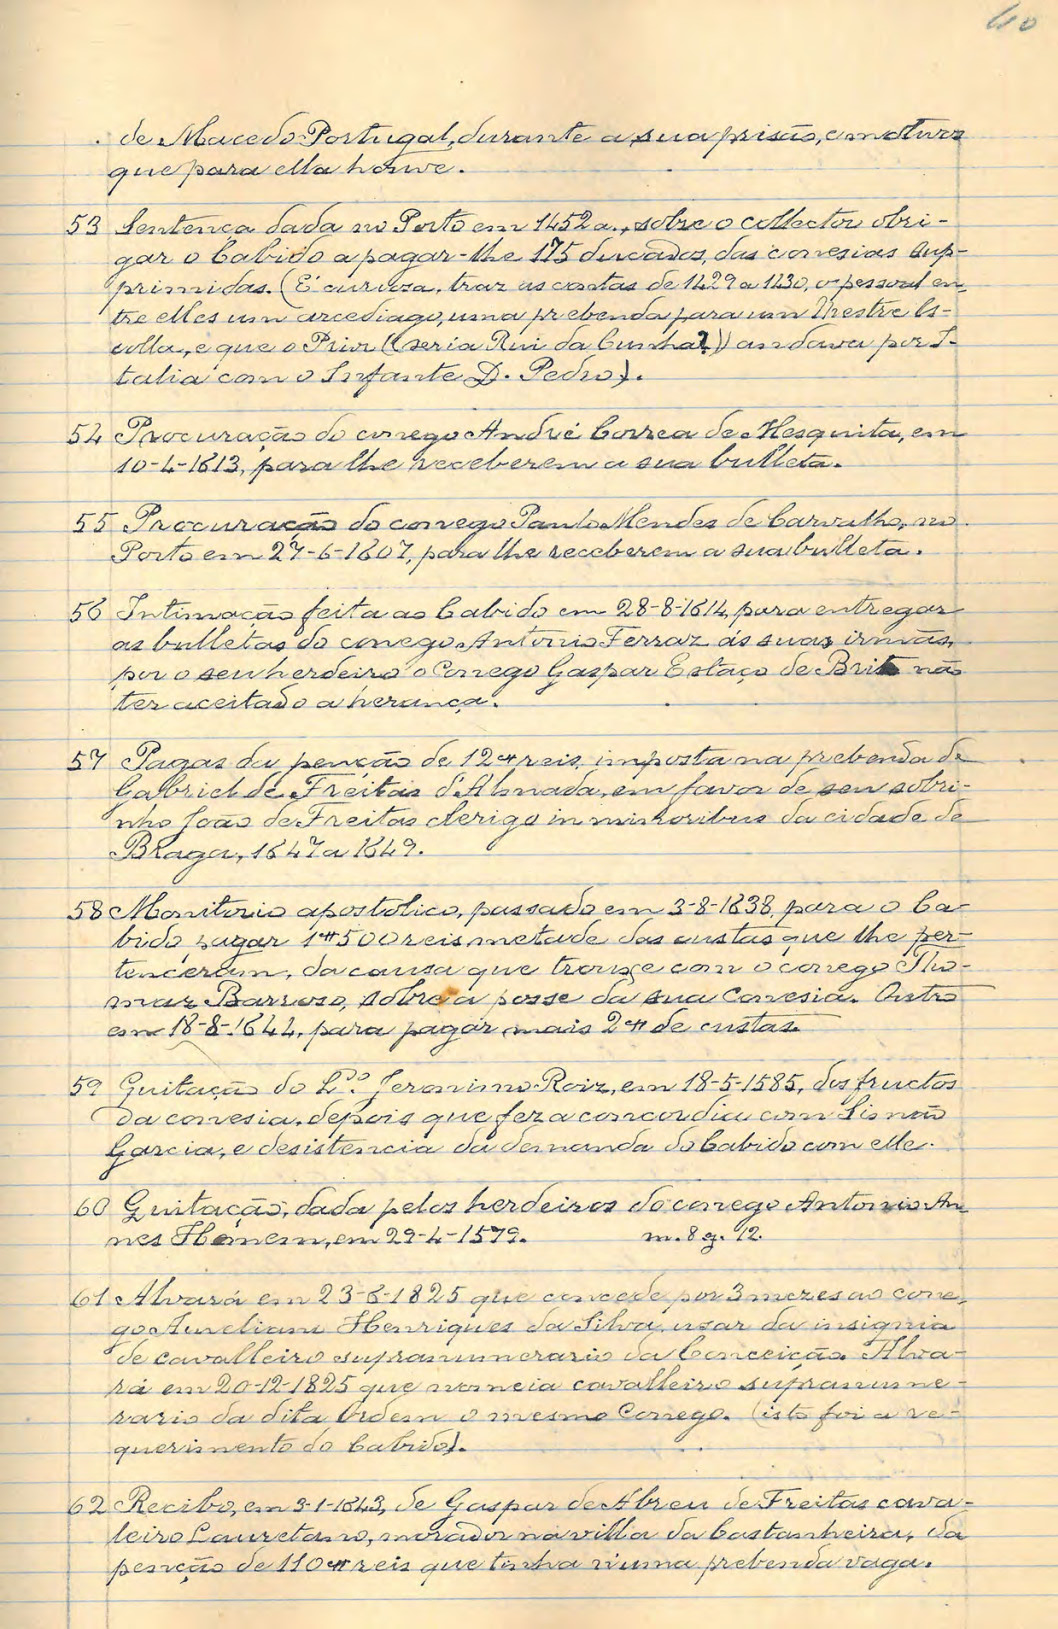 40
de Macedo Portugal, durante a sua prisão, e motivos
que para ella houve.
53 Sentença dada no Porto em 1452 a., sobre o collector obri-
gar o Cabido a pagar-lhe 175 ducados, das conesias sup-
primidas. (É curiosa, traz as contas de 1429 a 1430, o pessoal en-
tre elles um arcediago, uma prebenda para um Mestre Es-
colla, e que o Prior ((seria Rui da Cunha?)) andava por I-
talia com o Infante D. Pedro).
54 Procuração do conego André Correa de Mesquita, em
10-4-1613, para lhe receberem a sua bulleta.
55 Procuração do conego Paulo Mendes de Carvalho, no
Porto em 27-6-1607, para lhe receberem a sua bulleta.
56 Intimação feita ao Cabido em 28-8-1614, para entregar
as bulletas do conego Antonio Ferraz ás suas irmãs,
por o seu herdeiro o Conego Gaspar Estaço de Brito não
ter aceitado a herança.
57 Pagas da penção de 12$ reis, imposta na prebenda de
Gabriel de Freitas d'Almada, em favor de seu sobri-
nho João de Freitas clerigo in minoribus da cidade de
Braga, 1647 a 1649.
58 Monitorio apostolico, passado em 3-8-1638, para o Ca-
bido pagar 1$500 reis, metade das custas que lhe per-
tenceram, da causa que trouxe com o conego Tho-
maz Barroso, sobre a posse da sua Conesia. Outro
em 18-8-1644, para pagar mais 2$ de custas.
59 Quitação do L.do Jeronimo Roiz, em 18-5-1585, dos fructos
da conesia, depois que fez a concordia com Simão
Garcia, e desistencia da demanda do Cabido com elle.
60 Quitação, dada pelos herdeiros do conego Antonio An-
nes Homem, em 29-4-1579. m. 8 g. 12.
61 Alvará em 23-6-1825 que concede por 3 mezes ao cone-
go Aureliano Henriques da Silva, usar da insignia
de cavalleiro supranumerario da Conceição. Alva-
rá em 20-12-1825 que nomeia cavalleiro supranume-
rario da dita Ordem o mesmo Conego. (isto foi a re-
querimento do Cabido).
62 Recibo, em 3-1-1643, de Gaspar de Abreu de Freitas cava-
leiro Lauretano, morador na villa da Castanheira, da
penção de 110$ reis que tinha n'uma prebenda vaga.